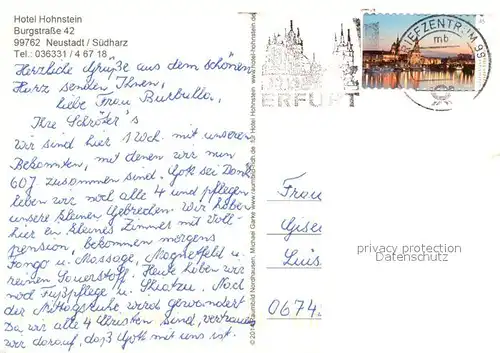 Hotel Hohnstein
Burgstraße 42
99762 Neustadt / Südharz
Tel.: 036331 / 4 67 18
Herzliche Grüße aus dem schönen
Harz senden Ihnen,
liebe Frau Burbulla,
Ihre Schröter's
Wir sind hier 1 Wch. mit unseren
Bekannten, mit denen wir nun
60 J. zusammen sind. Gott sei Dank
leben wir noch alle 4 und pflegen
unsere kleinen Gebrechen. Wir haben
hier ein kleines Zimmer mit Voll-
pension, bekommen morgens
Fango u. Massage, Magnetfeld u.
reinen Sauerstoff. Heute haben wir
noch Fußpflege u. Shiatzu. Nach
der Mittagsruhe wird gewandert
Da wir alle 4 Christen sind, vertrauen
wir darauf, daß Gott mit uns ist.
Michael Garke www.raumbild-ndh.de für Hotel Hohnstein www.hotel-hohnstein.de
ERFURT
BRIEFZENTRUM 99
mb
45
Frau
Gisel
Luis
0674
privacy protection
Datenschutz